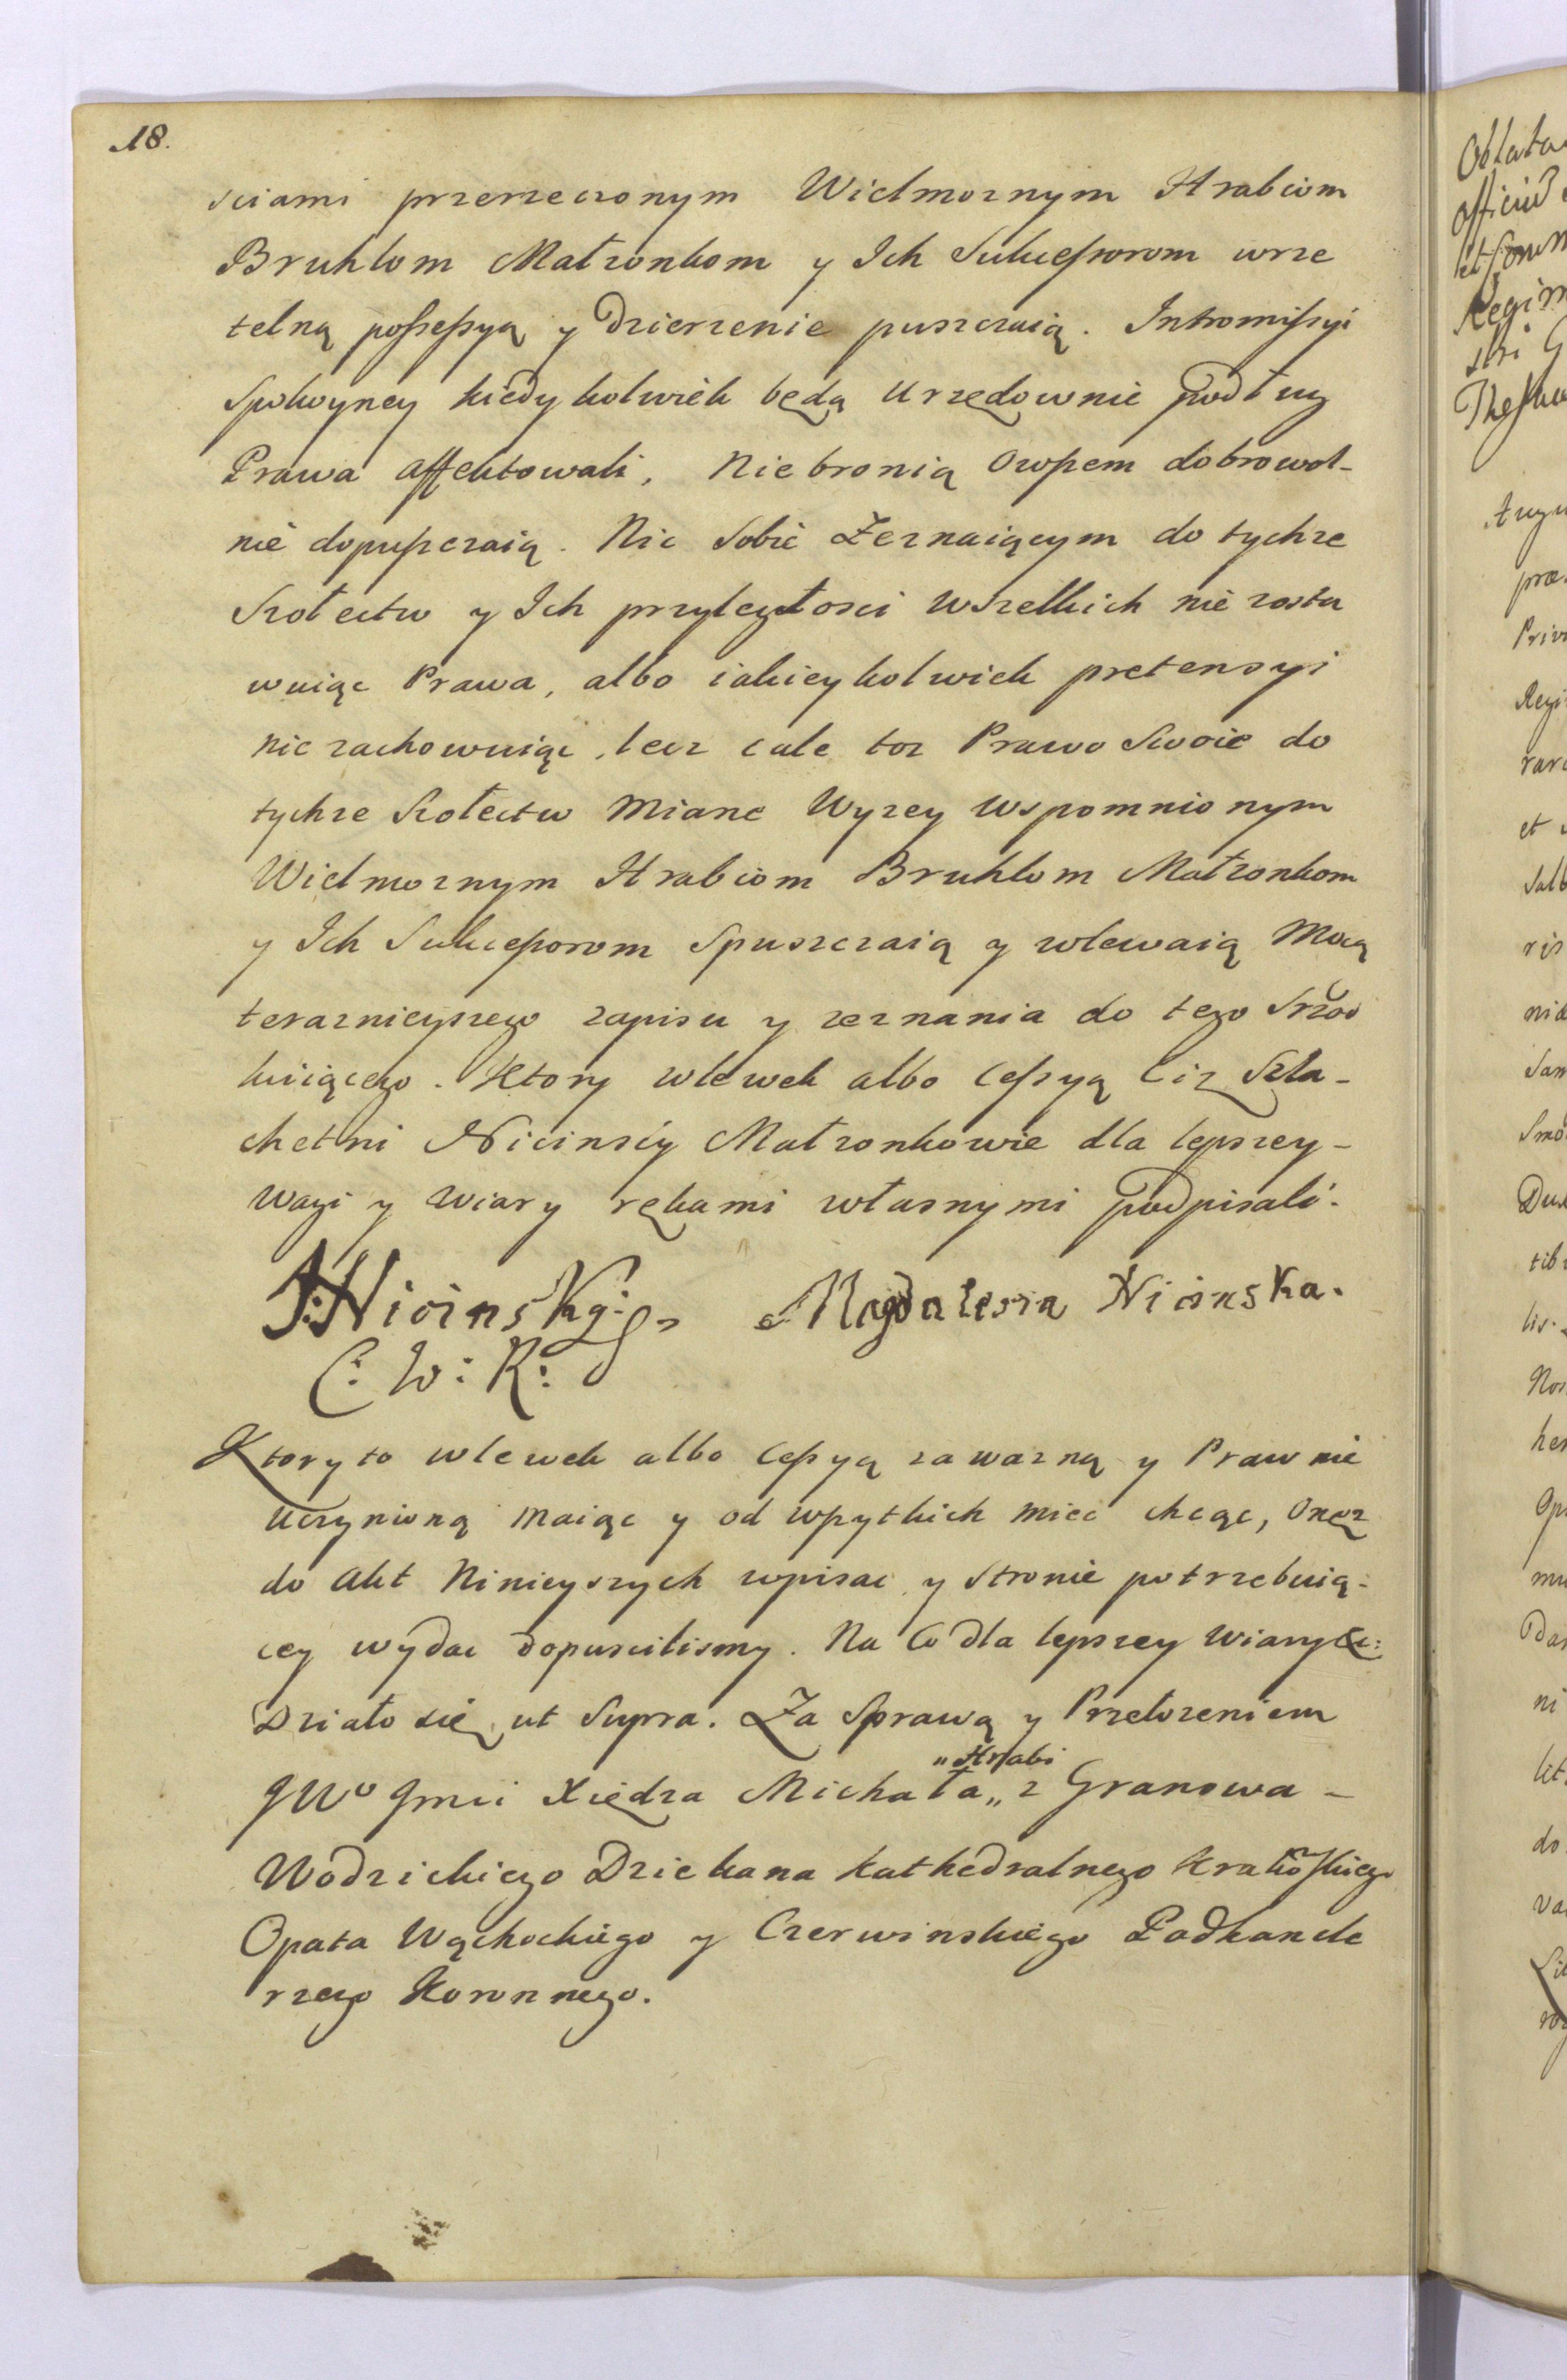 18.
sciami przerzeczonym Wielmoznym Hrabiom
Bruhlom Małzonkom y Ich Sukceſsorom wrze
telną poſseſsyą y dzierzenie puszczaią. Intromiſsyi
Spokoyney kiedykolwiek będą Urzędownie podług
Prawa affektowali, Niebronią Owſzem dobrowol-
nie dopuſzczaią. Nic Sobie Zeznaiącym do tychze
Szołectw y Ich przyległosci wszelkich nie zosta
wuiąc Prawa, albo iakieykolwiek pretensyi
nie zachowuiąc, lecz całe toz Prawo Swoie do
tychze Szołectw Miane Wyzey Wspomnionym
Wielmoznym Hrabiom Bruhlom Małzonkom
y Ich Sukceſsorom Spuszczaią y wlewaią Mocą
teraznieyszego zapisu y zeznania do tego Srzod
kuiącego. Ktory wlewek albo Ceſsyą Ciz Szla-
chetni Nicinscy Małzonkowie dla lepszey-
Wagi y Wiary rękami własnymi podpisali.
J: Nicinsky:
C: W: K:
Magdalena Nicinska.
Ktoryto wlewek albo Ceſsyą za wazną y Prawnie
Uczynioną Maiąc y od wſzytkich miec chcąc, Onęz
do Akt Ninieyszych wpisac y Stronie potrzebuią-
cey wydac dopuscilismy. Na Co dla lepszey Wiary &c:
Działo się ut Supra. Za Sprawą y Przełozeniem
JWo Jmci Xiędza Michała „Hrabi„ z Granowa -
Wodzickiego Dziekana Kathedralnego Krakoſkiego
Opata Wąchockiego y Czerwinskiego Podkancle
rzego Koronnego.
Oblata
Officio
Regim